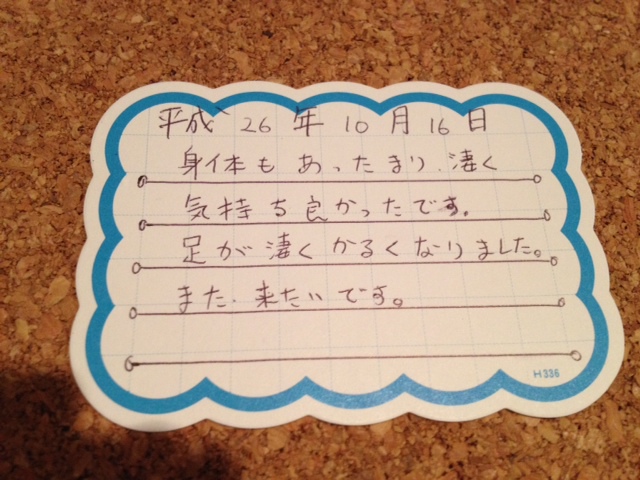 平成26年10月16日
身体もあったまり、凄く
気持ち良かったです。
足が凄くかるくなりました。
また、来たいです。
H336